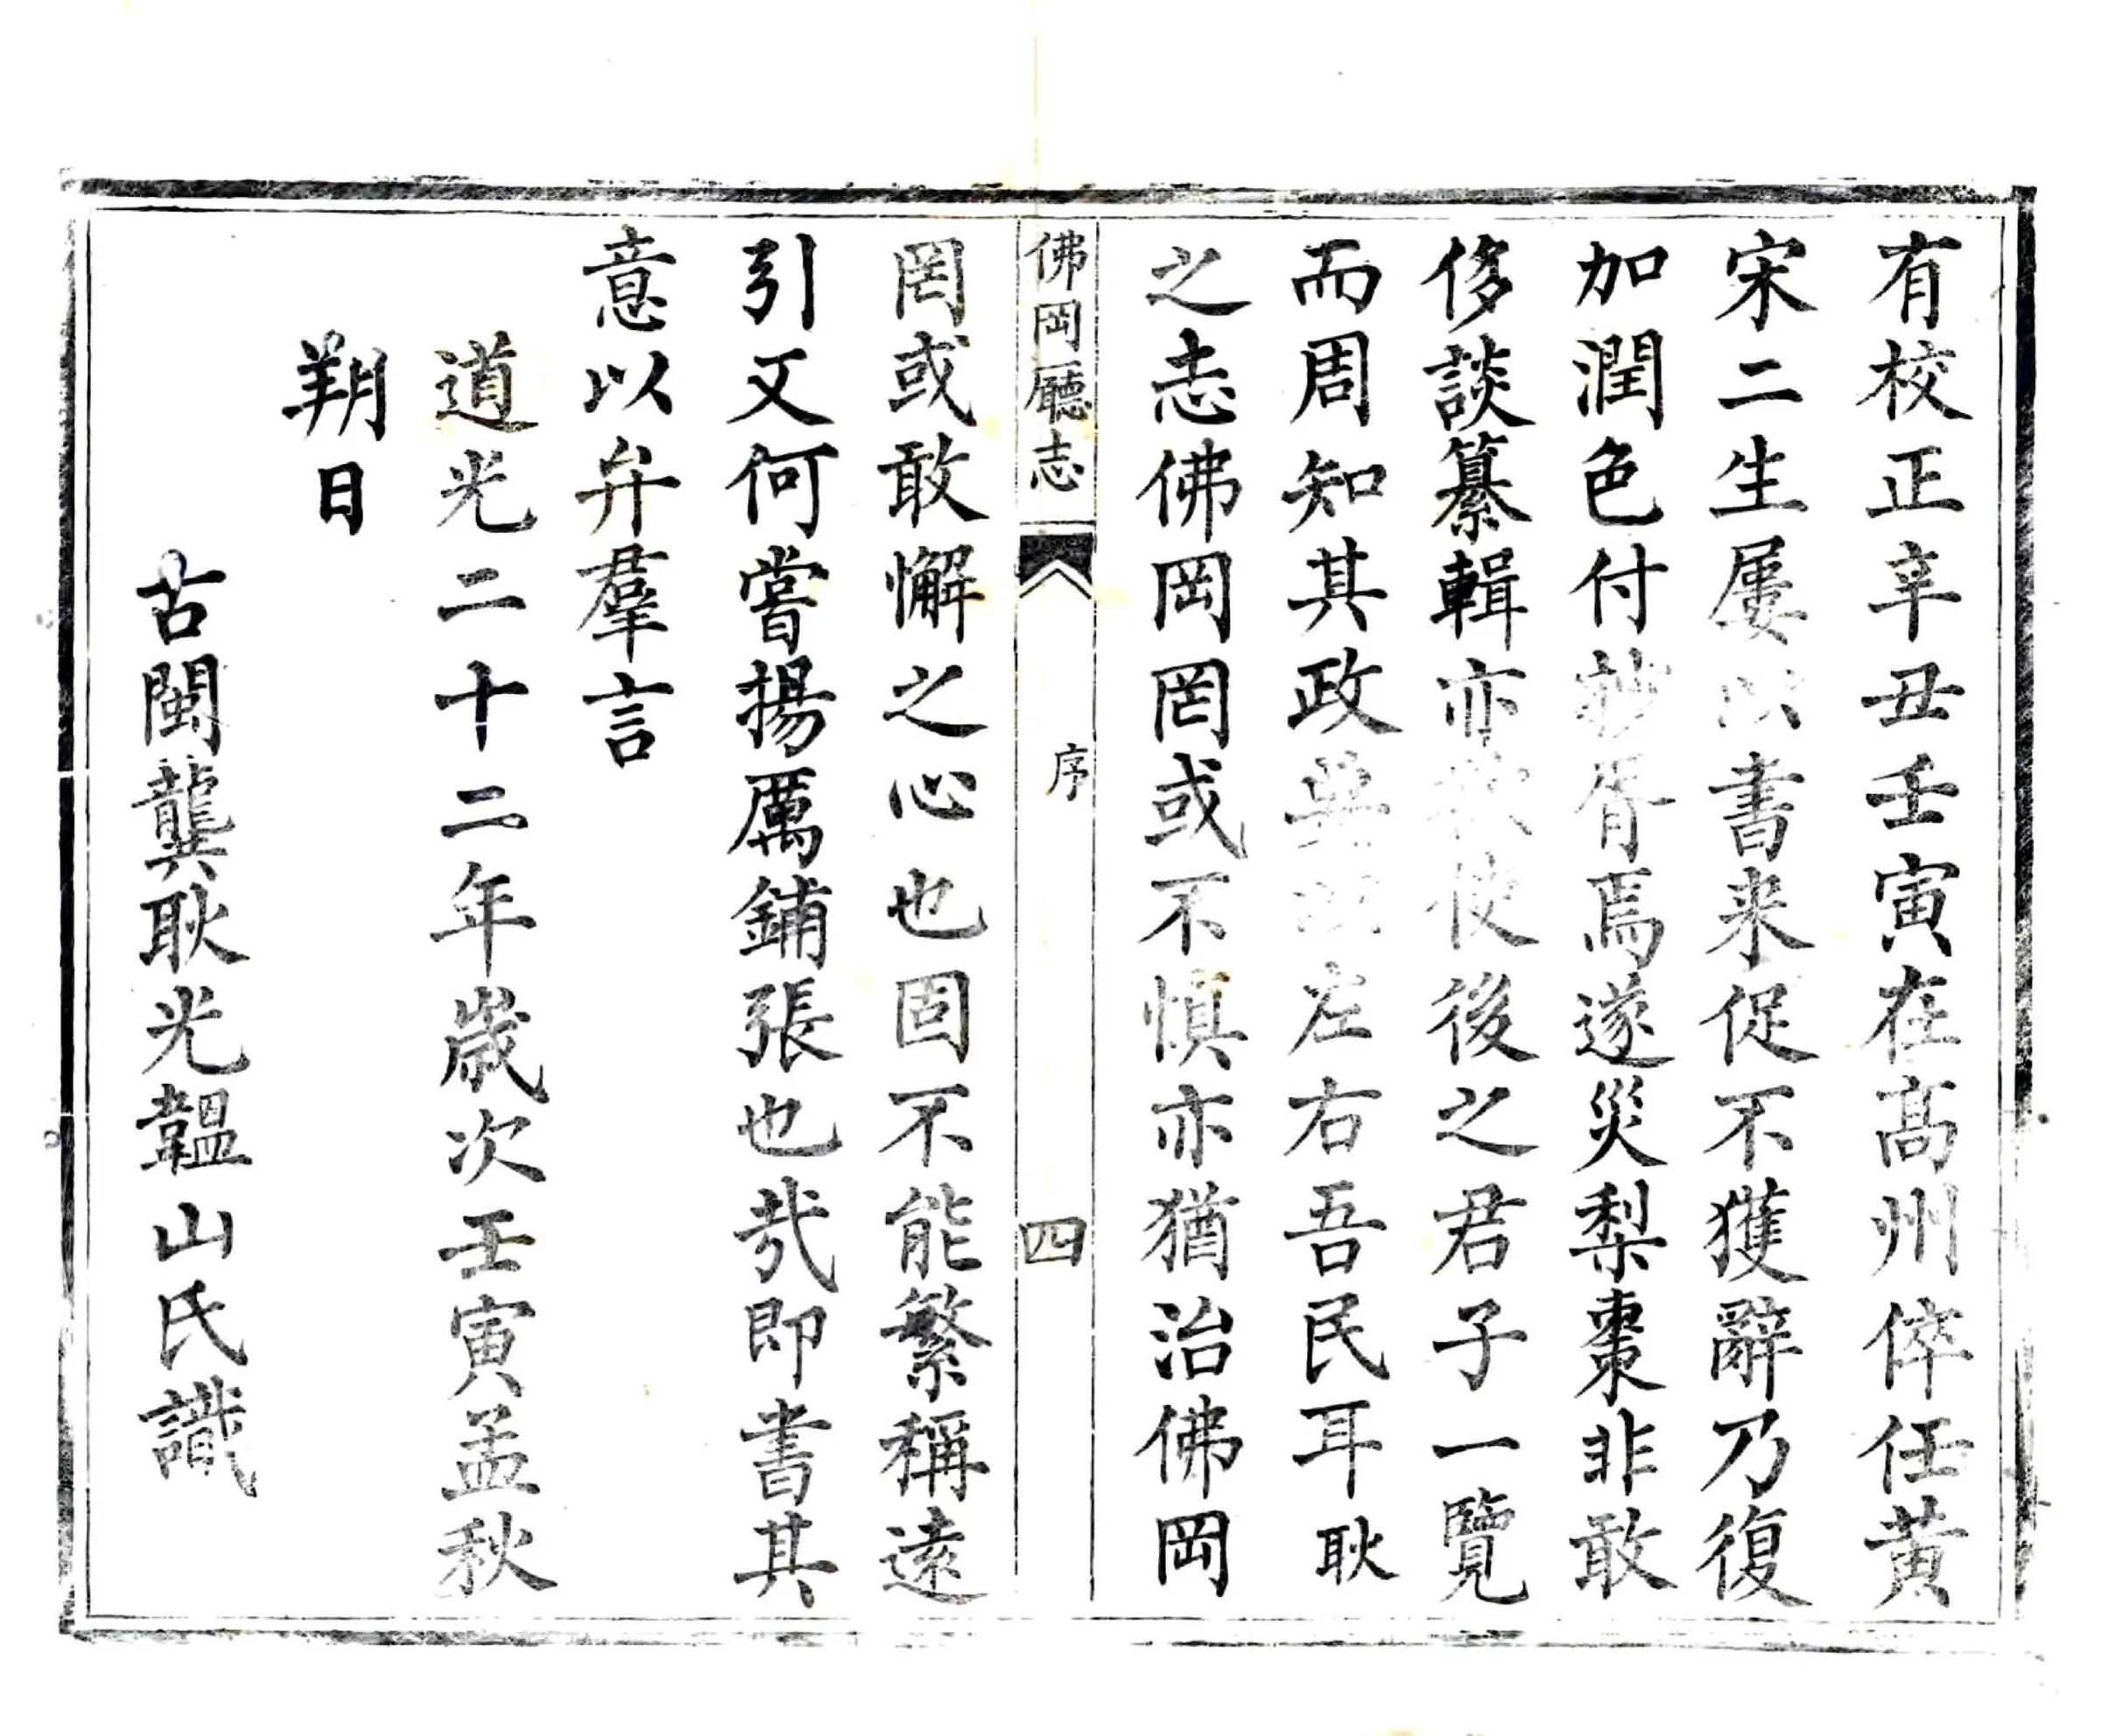 有校正辛丑壬寅在高州倅任黄
宋二生屢以書来促不獲辭乃復
加潤色付鈔胥焉遂災梨棗非敢
侈談纂輯亦使後之君子一覽
而周知其政左右吾民耳耿
之志佛岡罔或不慎亦猶治佛岡
佛岡廳志
序
四
罔或敢懈之心也固不能繁稱遠
引文何嘗揚厲鋪張也㢤即書其
意以弁羣言
道光二十二年歲次壬寅孟秋
朔日
古閩龔耿光韞山氏識